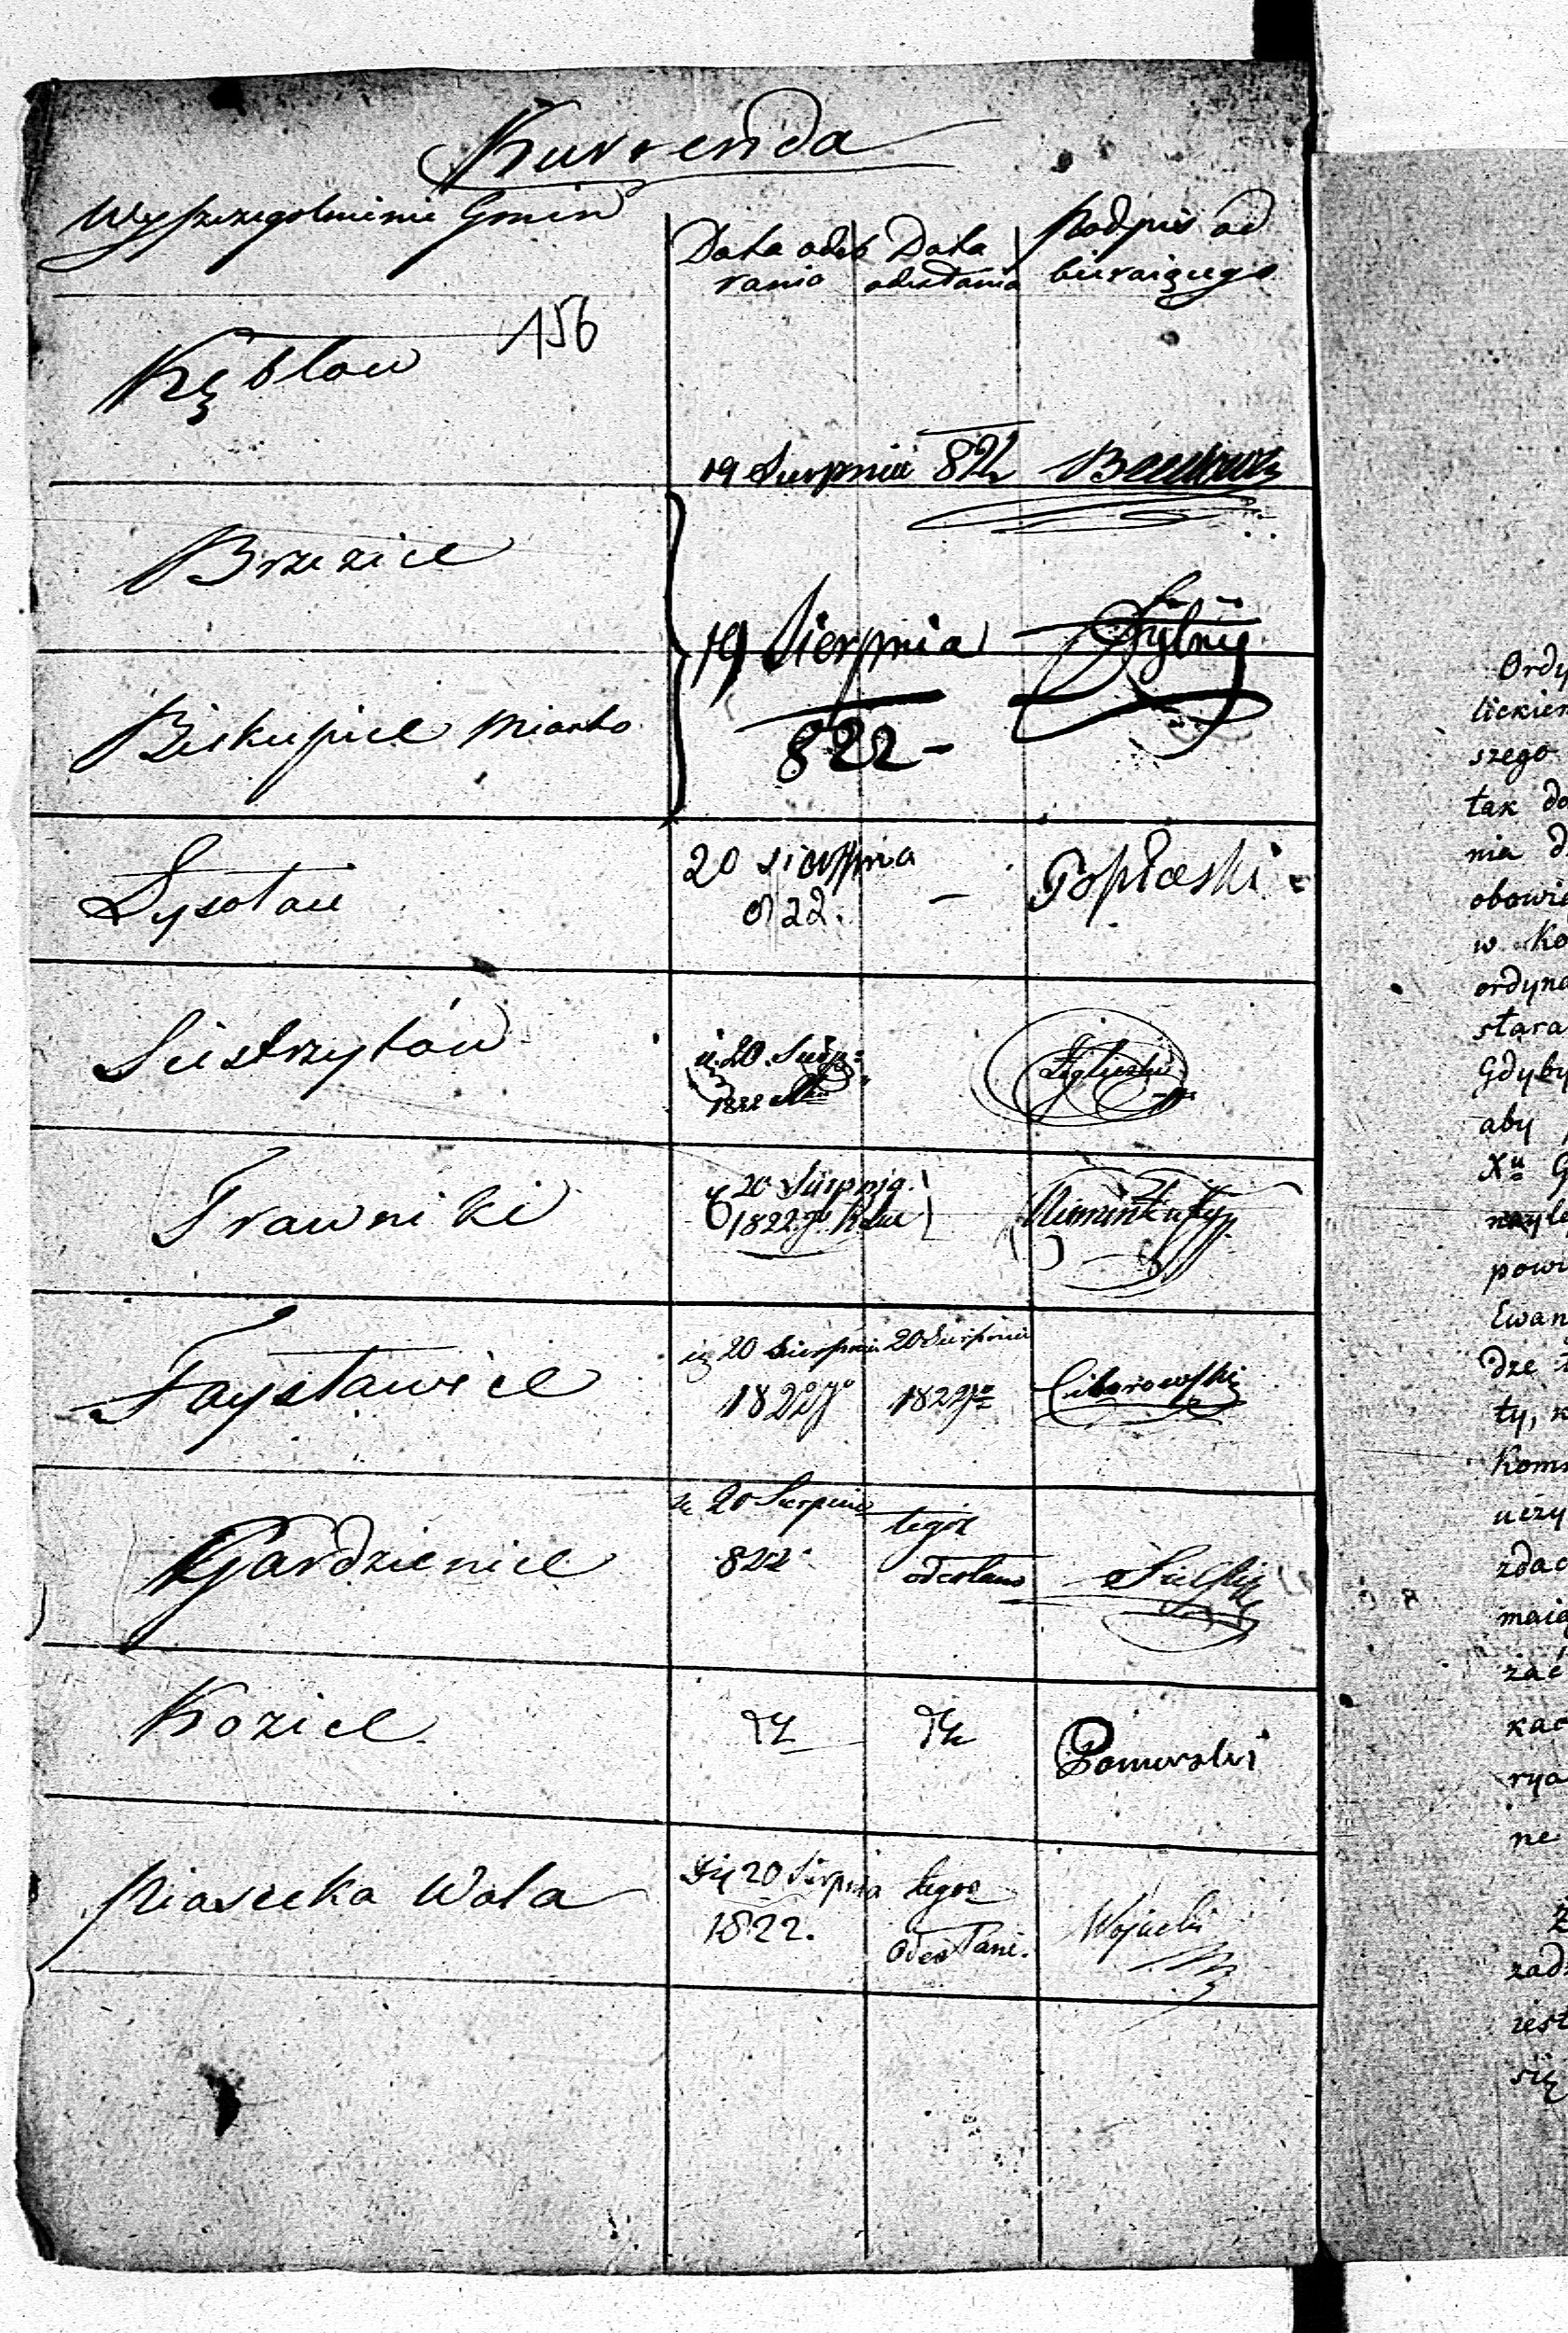 Kurrenda
Wyszczegolnienie Gmin
Data odeb
rania
Data
odesłania
Podpis od
bieraiącego
156
Kębłow
19 Sierpnia 822
Brzezice
19 Sierpnia
822 -
Biskupice Miasto
Łysołaie
20 sierpnia
822.
-
Popławski
Siestrzytów
d. 20. Sierp:
1822
Trawniki
d 20 Sierpnia
1822go Roku
Faysławice
dq 20 Sierpnia
1822go
20 Sierpnia
1822go
Ciborowski
Gardzienice
20 Sierpnia
822
tegoż
odesłano
Kozice
Pomorski
Piasecka Wola
20 Sierpnia
1822.
tegoż
Odesłane.
Wojucki
Ordy
szego
tak do
nia d
obowie
w Ko
ordyna
stara
Gdyby
aby
powi
Ewan
dze
ty,
Komm
uczy
zdac
maią
kac
rya
ne
zad
iest
się